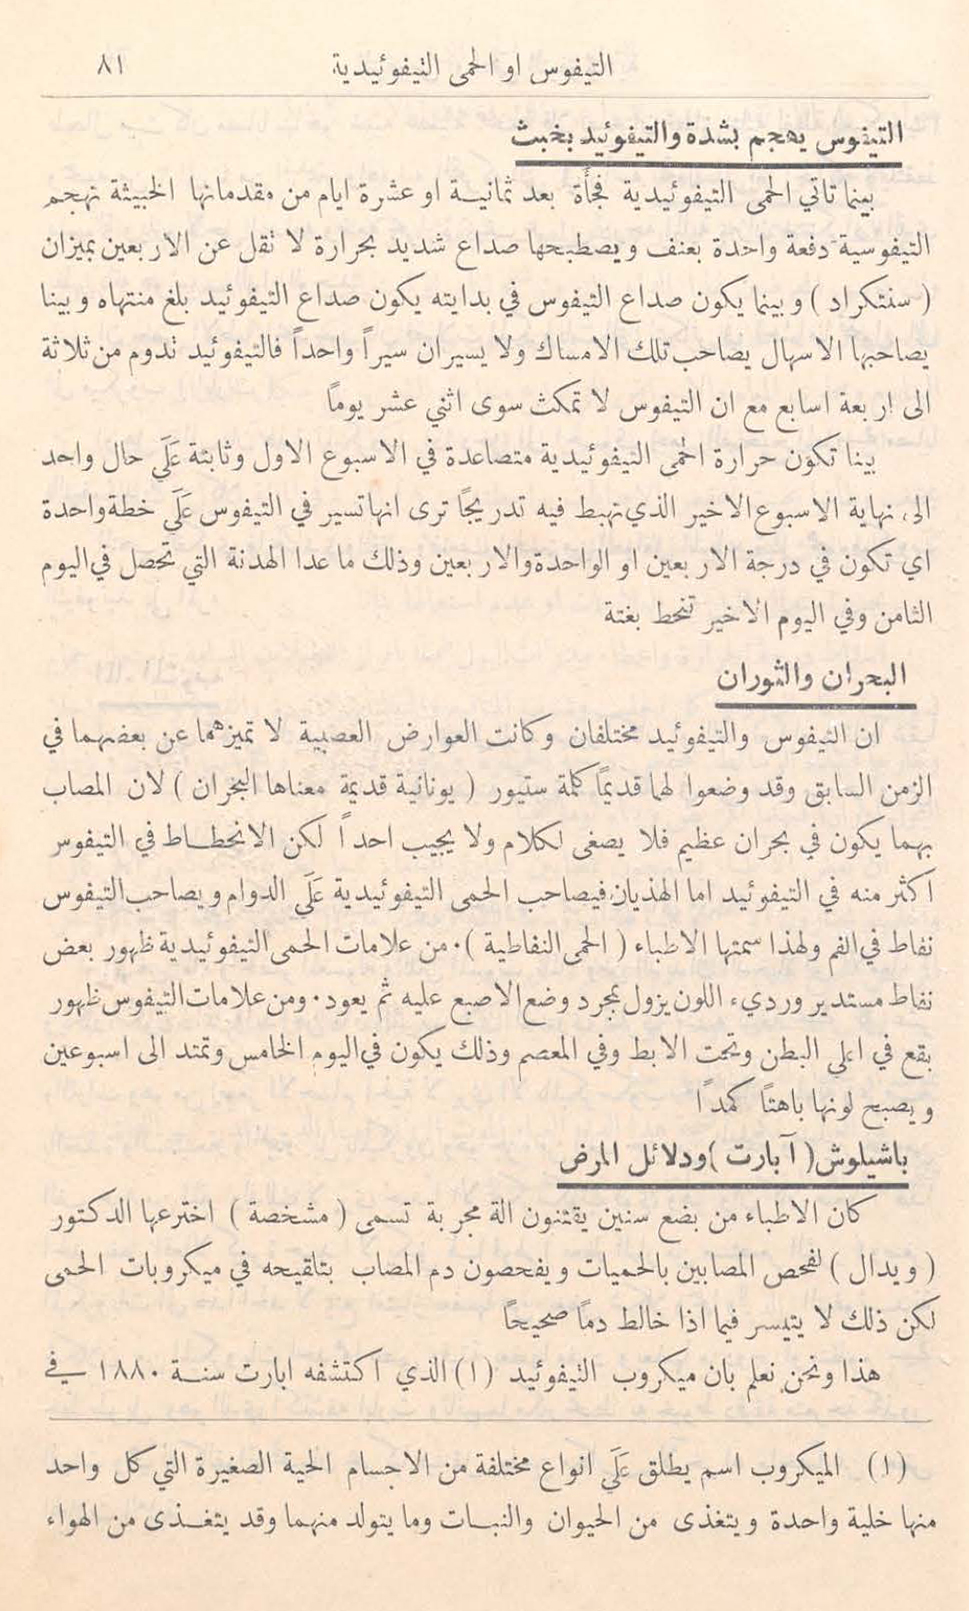 التيفوس او الحمى التيفوئيدية ٨١
التيفوس يهجم بشدة والتيفوئيد بخبث
بينما تاتي الحمى التيفوئيدية فجأة بعد ثمانية او عشرة ايام من مقدماتها الخبيثة تهجم
التيفوسية دفعة واحدة بعنف ويصطبحها صداع شديد بحرارة لا تقل عن الاربعين بميزان
( سنتكراد ) وبينما يكون صداع التيفوس في بدايته يكون صداع التيفوئيد بلغ منتهاه وبينا
يصاحبها الاسهال يصاحب تلك الامساك ولا يسيران سيراً واحداً فالتيفوئيد تدوم من ثلاثة
الى اربعة اسابع مع ان التيفوس لا تمكث سوى اثني عشر يوماً
بينا تكون حرارة الحمى التيفوئيدية متصاعدة في الاسبوع الاول وثابتة عَلَى حال واحد
الى نهاية الاسبوع الاخير الذي تهبط فيه تدريجًا ترى انها تسير في التيفوس عَلَى خطة واحدة
اي تكون في درجة الاربعين او الواحدة والاربعين وذلك ما عدا الهدنة التي تحصل في اليوم
الثامن وفي اليوم الاخير تنحط بغتة
البحران والثوران
ان التيفوس والتيفوئيد مختلفان وكانت العوارض العصبية لا تميزهما عن بعضهما في
الزمن السابق وقد وضعوا لهما قديمًا كلمة ستيور ( يونانية قديمة معناها البخران ) لان المصاب
بهما يكون في بحران عظيم فلا يصغى لكلام ولا يجيب احداً لكن الانحطاط في التيفوس
اكثر منه في التيفوئيد اما الهذيان فيصاحب الحمى التيفوئيدية عَلَى الدوام ويصاحب التيفوس
نفاط في الفم ولهذا سمتها الاطباء ( الحمى النفاطية ) ٠ من علامات الحمى التيفوئيدية ظهور بعض
نفاط مستدير ورديء اللون يزول بمجرد وضع الاصبع عليه ثم يعود ٠ ومن علامات التيفوس ظهور
بقع في اعلى البطن وتحت الابط وفي المعصم وذلك يكون في اليوم الخامس وتمتد الى اسبوعين
ويصبح لونها باهتاً كمدًا
باشيلوش ( آبارت ) ودلائل المرض
كان الاطباء من بضع سنين يقتنون الة مجربة تسمى ( مشخصة ) اخترعها الدكتور
( ويدال ) لفحص المصابين بالحميات ويفحصون دم المصاب بتلقيحه في ميكروبات الحمى
لكن ذلك لا يتيسر فيما اذا خالط دمًا صحيحًا
هذا ونحن نعلم بان ميكروب التيفوئيد (١) الذي اكتشفه ابارت سنة ١٨٨٠ في
(١) الميكروب اسم يطلق عَلَى انواع مختلفة من الاجسام الحية الصغيرة التي كل واحد
منها خلية واحدة ويتغذى من الحيوان والنبات وما يتولد منهما وقد يتغذى من الهواء